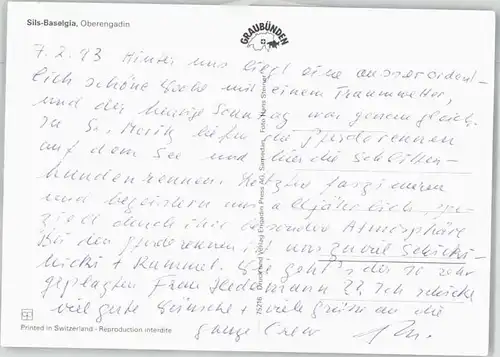 Sils-Baselgia, Oberengadin
GRAUBÜNDEN
7.2.93 Hinter uns liegt eine ausserordent-
lich schöne Woche mit einem Traumwetter,
und der heutige Sonntag war genau gleich.
In St. Moritz liefen die Pferderennen
auf dem See und hier die Schlitten-
hunderennen. Letztere faszinieren
und begeistern uns alljährlich, spe-
ziell durch ihre besondere Atmosphäre
Bei den Pferderennen ist uns zuviel Schicki-
micki + Rummel. Wie geht's der so sehr
geplagten Frau ?? Ich schicke
viel gute Wünsche + viele Grüsse an die
ganze Crew
75216 Druck und Verlag Engadin Press AG, Samedan Foto Hans Steiner
Printed in Switzerland - Reproduction interdite